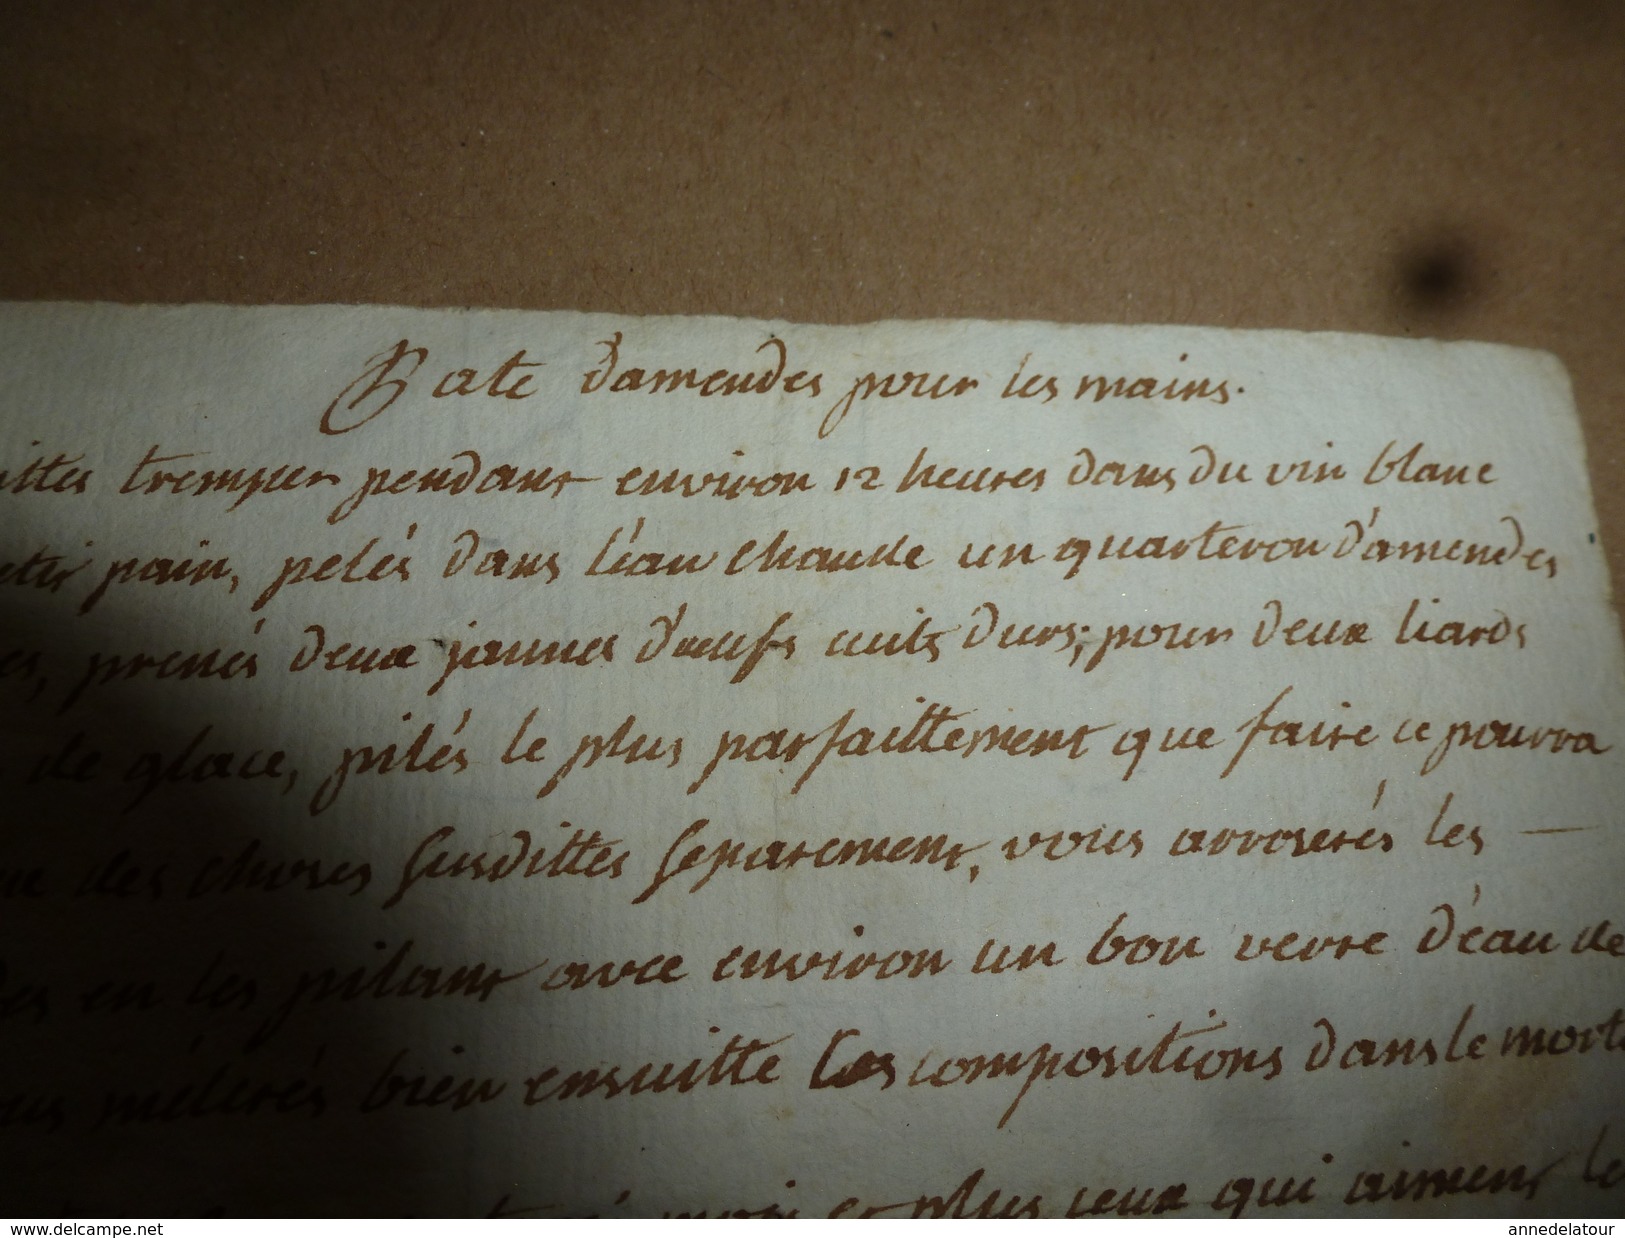 Pate damendes pour les mains.
ittes tremper pendant environ 12 heures dans du vin blanc
pain, pelés dans l'éau chaude un quarteron d'amendes
prenés deux jaunes d'oeufs cuits durs; pour deux liards
de glace, pilés le plus parfaittement que faire ce pourra
des choses susdittes separement, vous arroserés les —
des en les pilant avec environ un bon verre d'éau de
mélerés bien ensuitte les compositions dans le morti
moin et plus ceux qui aiment
delcampe.net
annedelatour